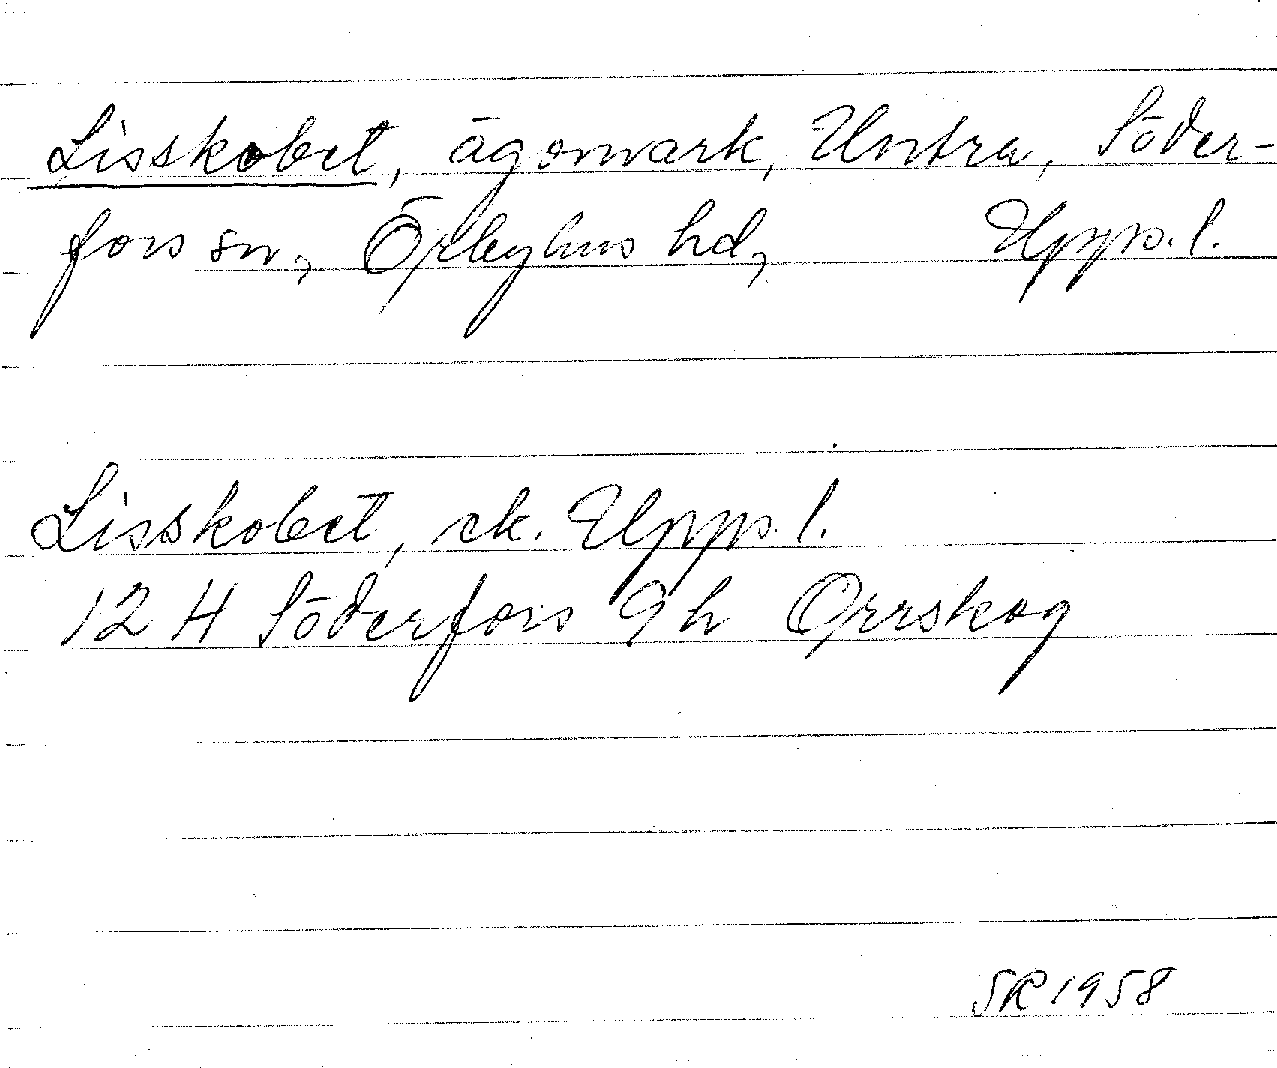 Lisskobet, ägomark, Untra, Söder-
fors sn, Örbyhus hd, Upps. l.
Lisskobet, ek. Upps. l.
12 H Söderfors 9 h Orrskog
SR 1958